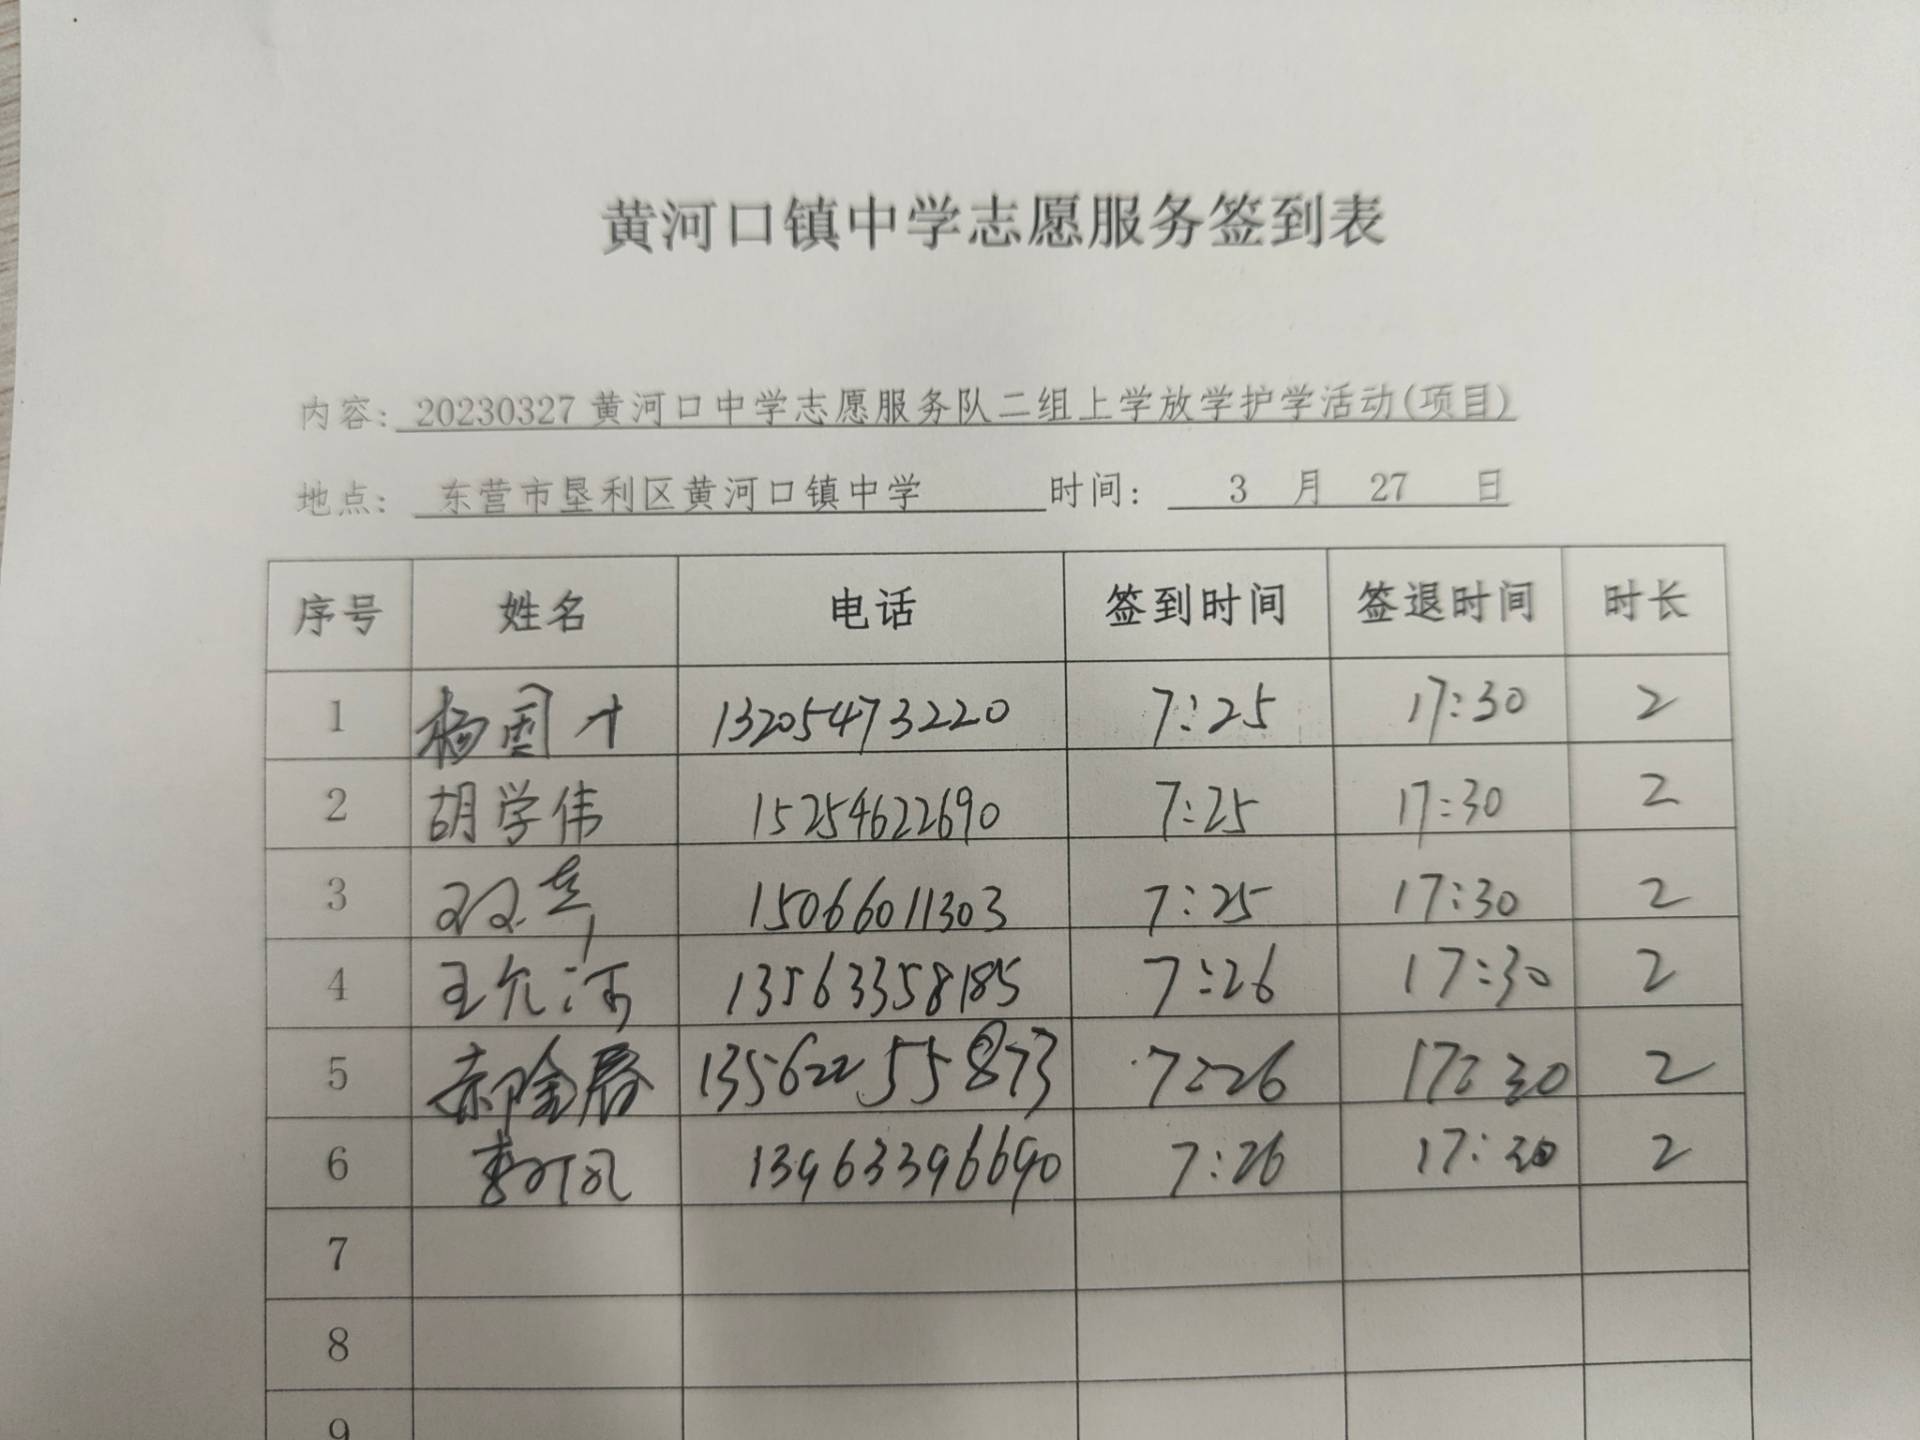 黄河口镇中学志愿服务签到表
内容: 20230327 黄河口中学志愿服务队二组上学放学护学活动(项目)
地点: 东营市垦利区黄河口镇中学 时间: 3 月 27 日
序号 姓名 电话 签到时间 签退时间 时长
1 杨 13205473220 7:25 17:30 2
2 胡学伟 15254622690 7:25 17:30 2
3 15066011303 7:25 17:30 2
4 王允河 13563358185 7:26 17:30 2
5 13562255873 7:26 17:30 2
6 13963396690 7:26 17:30 2
7
8
9